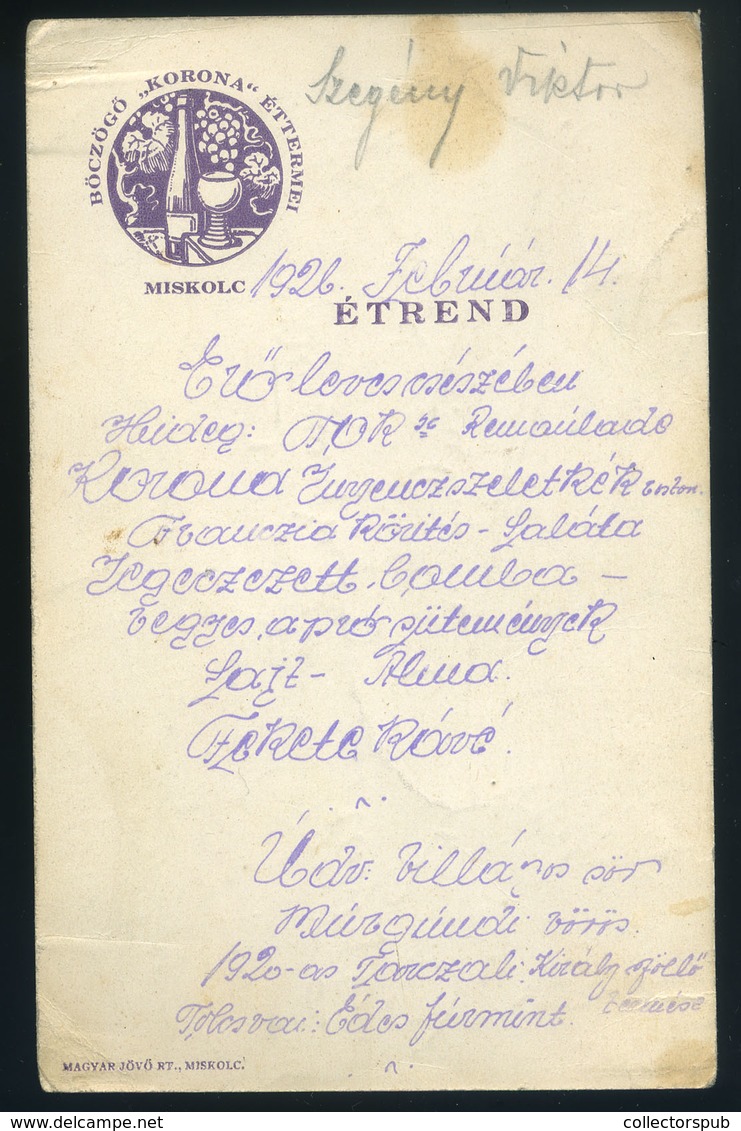 Szegény Viktor
BÖCZÖGŐ „KORONA“ ÉTTERMEI
MISKOLC
1926. Február. 14.
ÉTREND
Erőleves csészében
Hideg: Fogas Remoulade
Korona Inyenczszeletkék roston.
Franczia Körités - Saláta
Jegeczezett bomba -
vegyes apró sütemények
Sajt - Alma.
Fekete Kávé.
Üdv: Világos sör
Burgundi vörös.
1920-as Tarczali: Király szőllő
termése
Tolcsvai: Édes furmint.
MAGYAR JÖVŐ RT., MISKOLC.
collectorspub